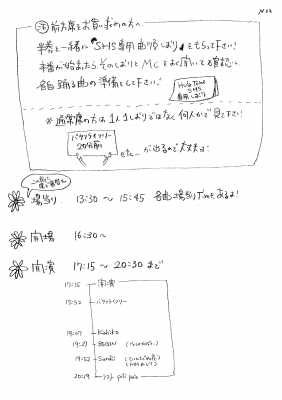 No.2
注 前方席をお買い求めの方へ
半券と一緒に"SHS専用曲順しおり"をもって下さい!
本番が始まったら、そのしおりとMCをよく聞いて確認し、
各自踊る曲の準備をして下さい!
Hula Time
SHS
専用しおり
※通常席の方は1人1しおりではなく何人かで見て下さい!
パタファイフリー
20分前
etc… が出るので大丈夫!
場当り 13:30 〜 15:45 各曲場当りTimeあるよ!
開場 16:30〜
開演 17:15 〜 20:30 まで
17:15 開演
17:52 パタファイフリー
19:07 Kahiko
19:27 BEGIN
19:52 Sandii
20:19 ラスト pili pale